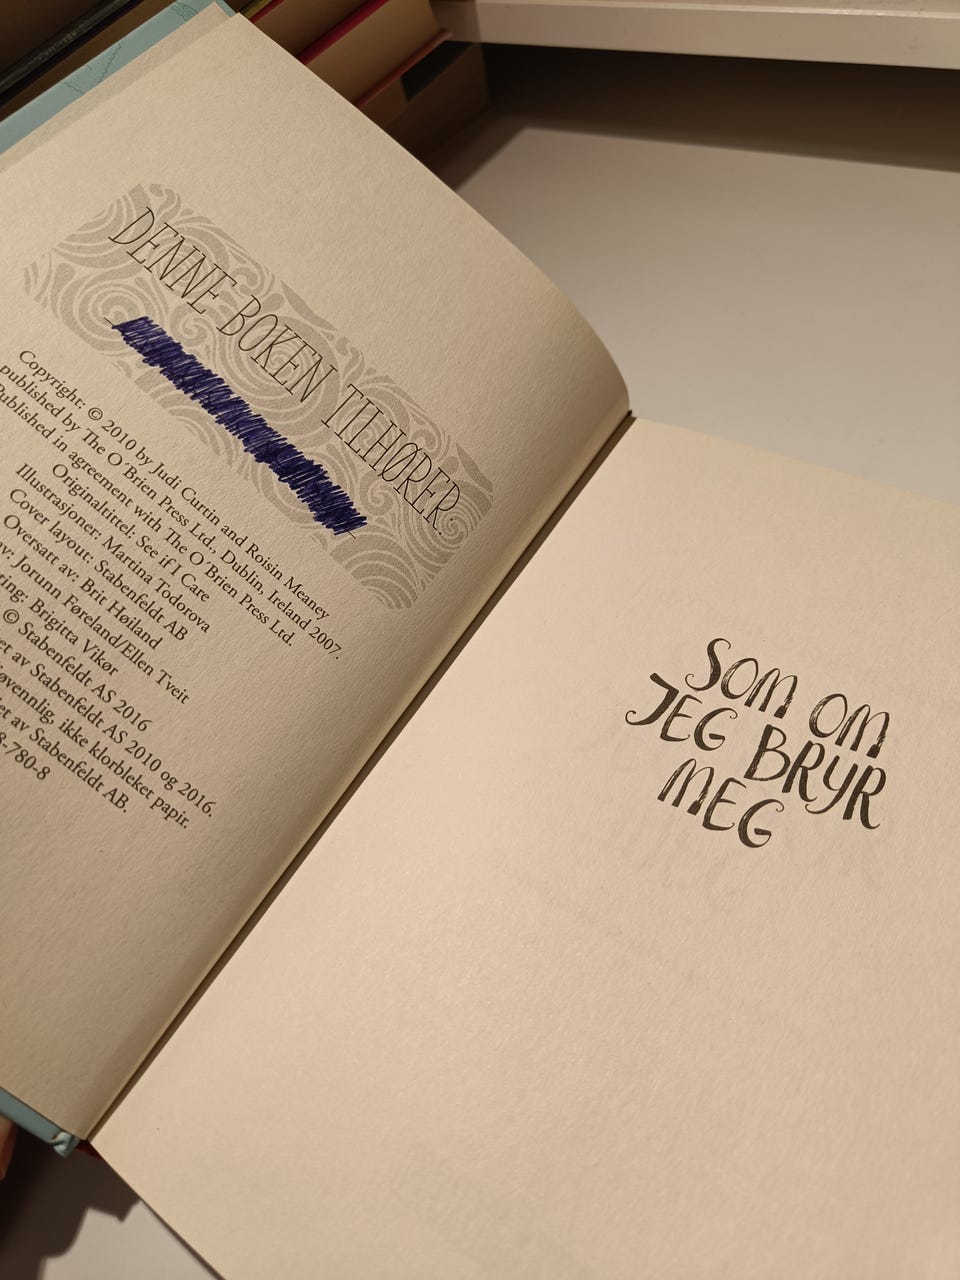 DENNE BOKEN TILHØRER:
Copyright: © 2010 by Judi Curtin and Roisin Meaney
published by The O'Brien Press Ltd., Dublin, Ireland 2007.
Published in agreement with The O'Brien Press Ltd.
Originaltittel: See if I Care
Illustrasjoner: Martina Todorova
Cover layout: Stabenfeldt AB
Oversatt av: Brit Høiland
Jorunn Føreland/Ellen Tveit
Brigitta Vikør
© Stabenfeldt AS 2016
av Stabenfeldt AS 2010 og 2016.
ikke klorbleket papir.
av Stabenfeldt AB.
8-780-8
SOM OM
JEG BRYR
MEG